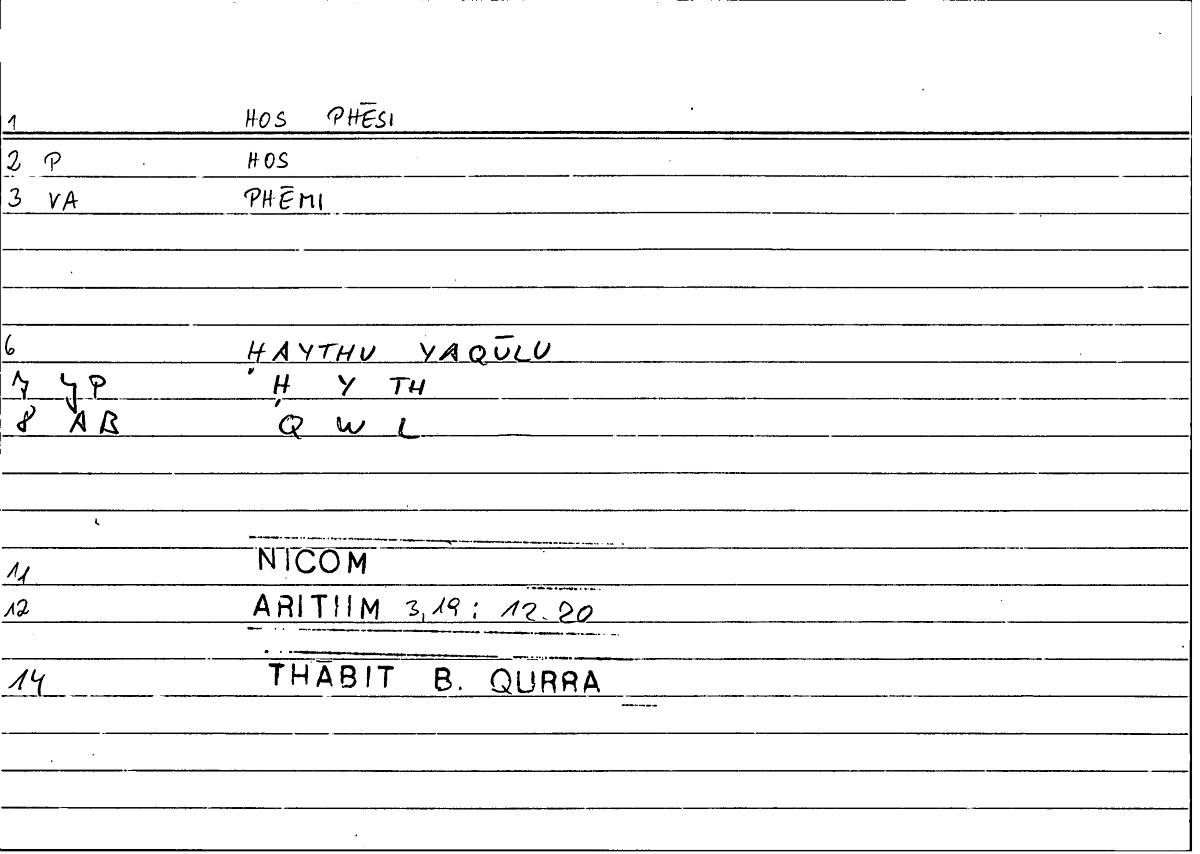 1 HOS PHĒSI
2 P HOS
3 VA PHĒMI
6 ḤAYTHU YAQŪLU
7 YP Ḥ Y TH
8 AB Q W L
11 NICOM
12 ARITIIM 3,19 : 12.20
14 THĀBIT B. QURRA